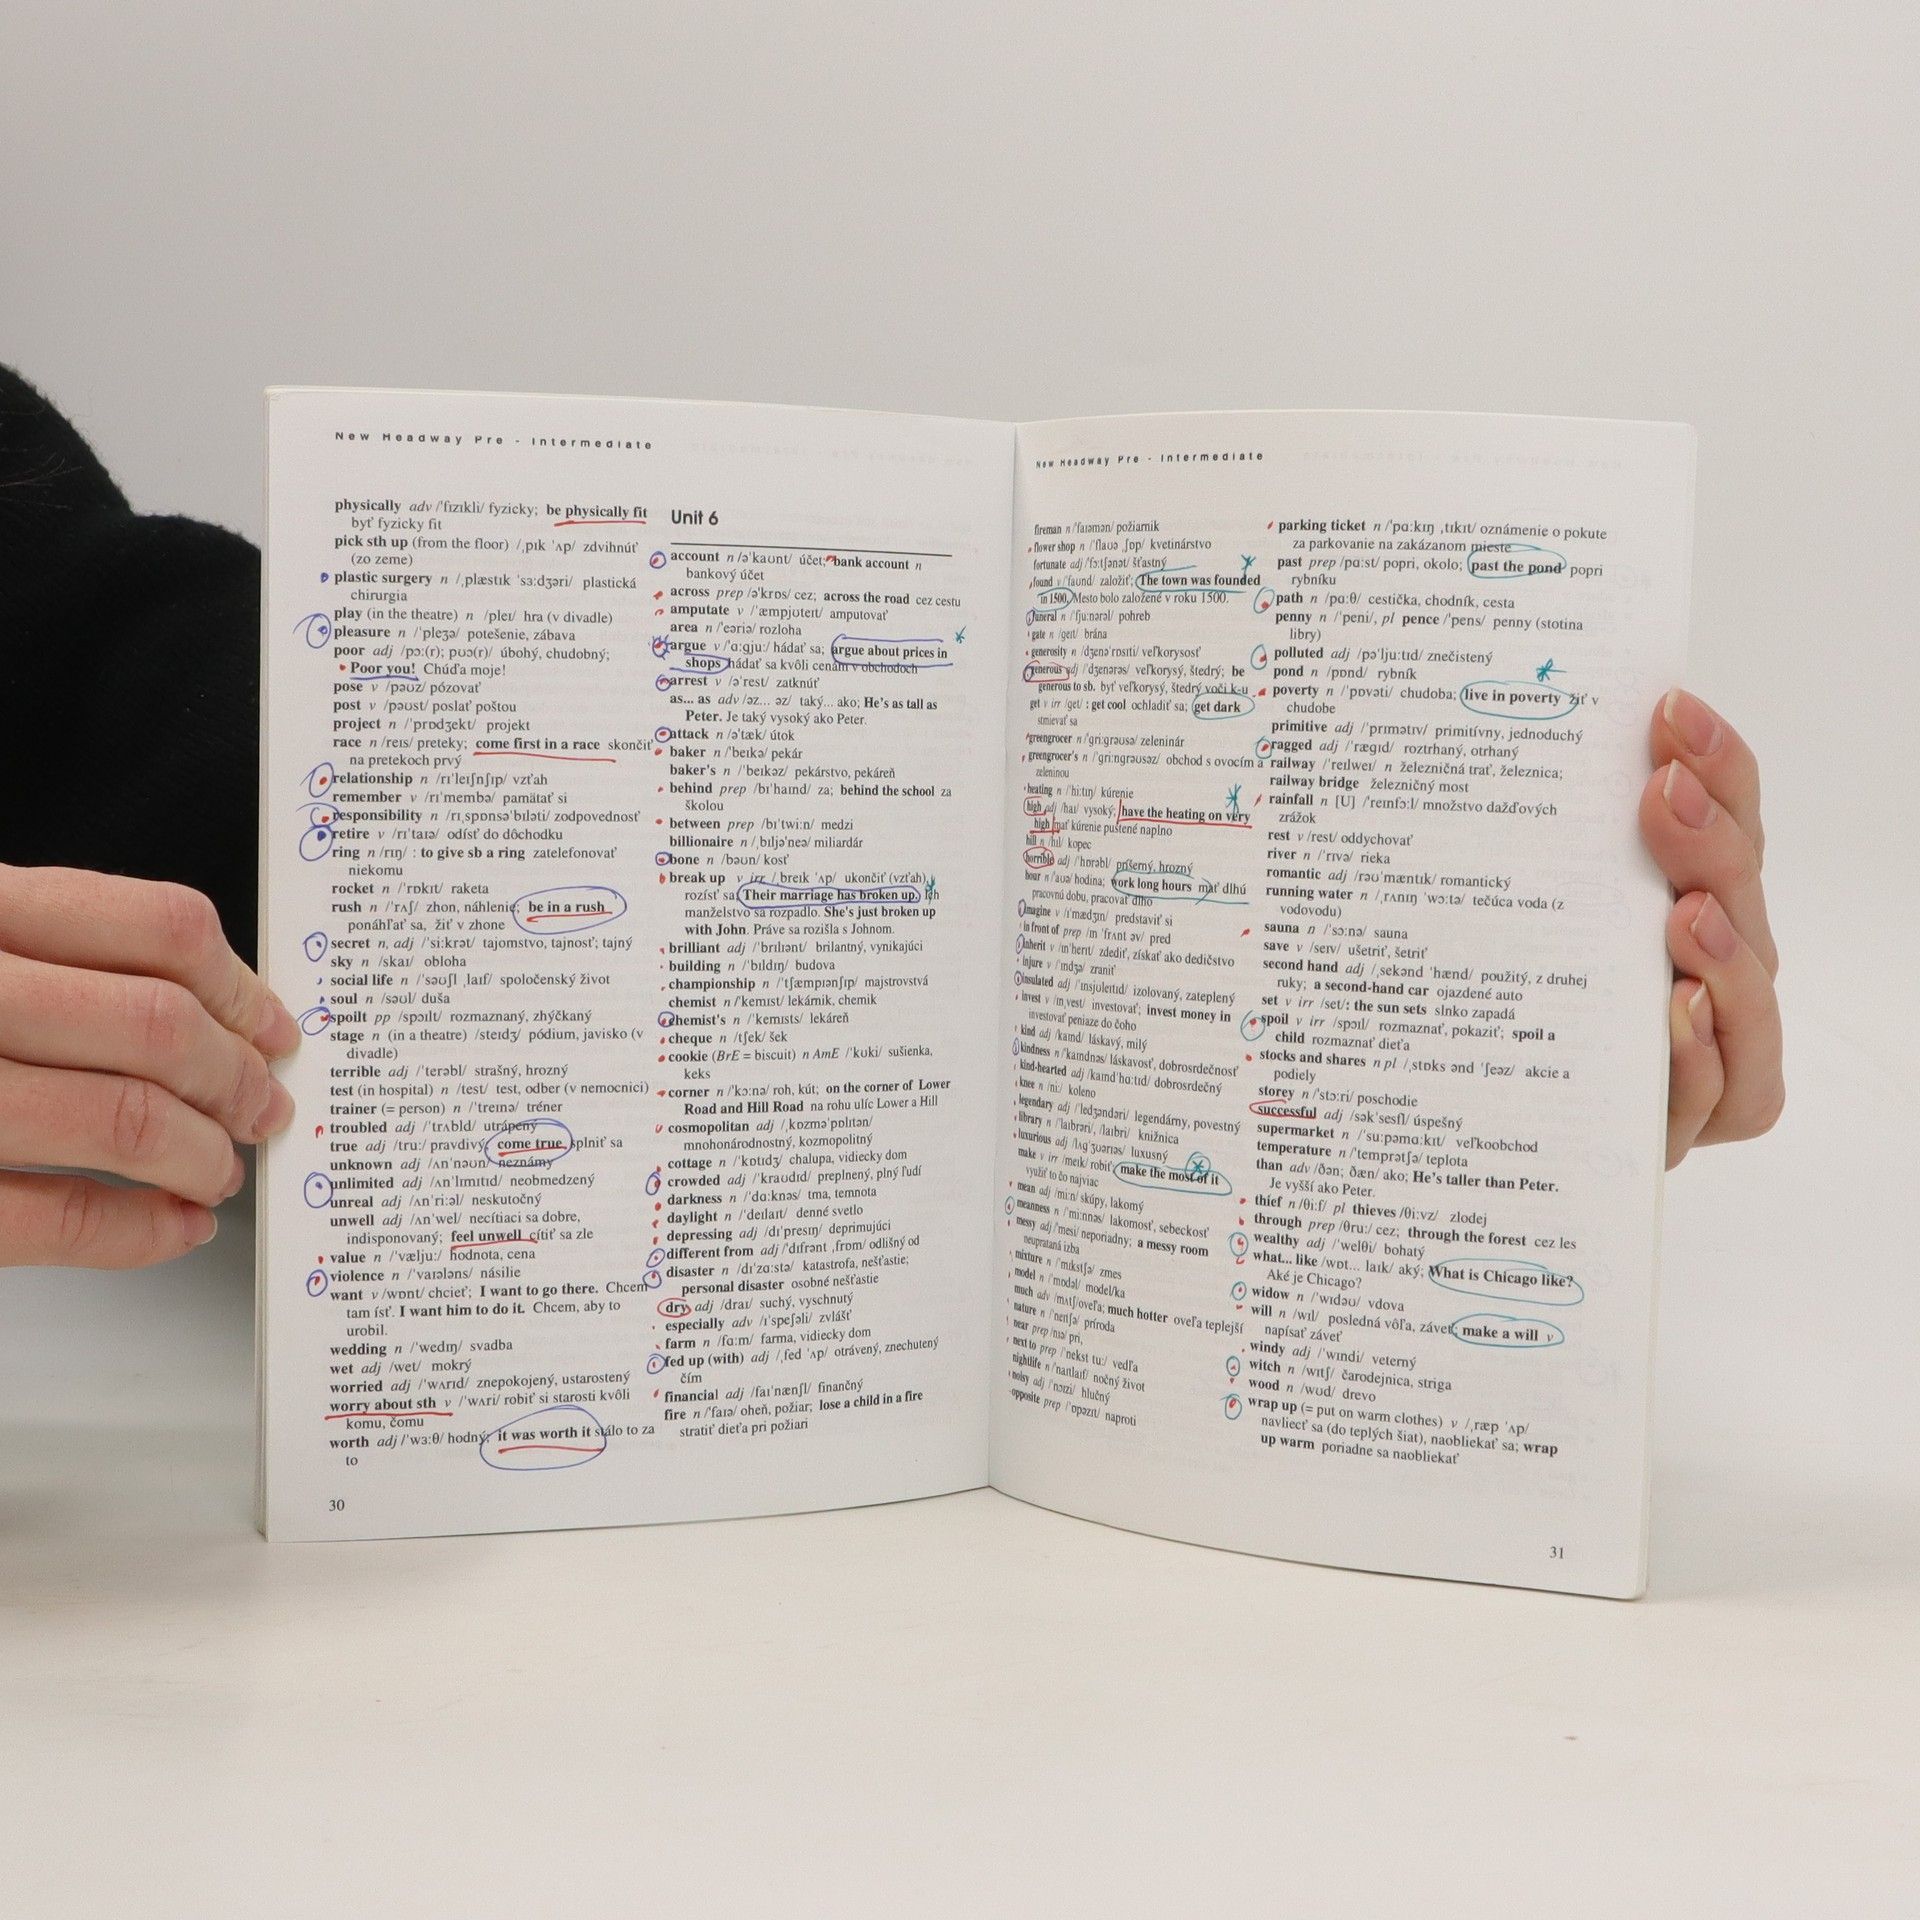 New Headway Pre - Intermediate
physically adv /ˈfɪzɪkli/ fyzicky; be physically fit
byť fyzicky fit
pick sth up (from the floor) /ˌpɪk ˈʌp/ zdvihnúť
(zo zeme)
plastic surgery n /ˌplæstɪk ˈsɜːdʒəri/ plastická
chirurgia
play (in the theatre) n /pleɪ/ hra (v divadle)
pleasure n /ˈpleʒə/ potešenie, zábava
poor adj /pɔː(r); pʊə(r)/ úbohý, chudobný;
Poor you! Chúďa moje!
pose v /pəʊz/ pózovať
post v /pəʊst/ poslať poštou
project n /ˈprɒdʒekt/ projekt
race n /reɪs/ preteky; come first in a race skončiť
na pretekoch prvý
relationship n /rɪˈleɪʃnʃɪp/ vzťah
remember v /rɪˈmembə/ pamätať si
responsibility n /rɪˌspɒnsəˈbɪləti/ zodpovednosť
retire v /rɪˈtaɪə/ odísť do dôchodku
ring n /rɪŋ/ : to give sb a ring zatelefonovať
niekomu
rocket n /ˈrɒkɪt/ raketa
rush n /ˈrʌʃ/ zhon, náhlenie; be in a rush
ponáhľať sa, žiť v zhone
secret n, adj /ˈsiːkrət/ tajomstvo, tajnosť; tajný
sky n /skaɪ/ obloha
social life n /ˈsəʊʃl ˌlaɪf/ spoločenský život
soul n /səʊl/ duša
spoilt pp /spɔɪlt/ rozmaznaný, zhýčkaný
stage n (in a theatre) /steɪdʒ/ pódium, javisko (v
divadle)
terrible adj /ˈterəbl/ strašný, hrozný
test (in hospital) n /test/ test, odber (v nemocnici)
trainer (= person) n /ˈtreɪnə/ tréner
troubled adj /ˈtrʌbld/ utrápený
true adj /truː/ pravdivý; come true splniť sa
unknown adj /ʌnˈnəʊn/ neznámy
unlimited adj /ʌnˈlɪmɪtɪd/ neobmedzený
unreal adj /ʌnˈriːəl/ neskutočný
unwell adj /ʌnˈwel/ necítiaci sa dobre,
indisponovaný; feel unwell cítiť sa zle
value n /ˈvæljuː/ hodnota, cena
violence n /ˈvaɪələns/ násilie
want v /wɒnt/ chcieť; I want to go there. Chcem
tam ísť. I want him to do it. Chcem, aby to
urobil.
wedding n /ˈwedɪŋ/ svadba
wet adj /wet/ mokrý
worried adj /ˈwʌrɪd/ znepokojený, ustarostený
worry about sth v /ˈwʌri/ robiť si starosti kvôli
komu, čomu
worth adj /ˈwɜːθ/ hodný; it was worth it stálo to za
to
30
Unit 6
account n /əˈkaʊnt/ účet; bank account n
bankový účet
across prep /əˈkrɒs/ cez; across the road cez cestu
amputate v /ˈæmpjʊteɪt/ amputovať
area n /ˈeəriə/ rozloha
argue v /ˈɑːgjuː/ hádať sa; argue about prices in
shops hádať sa kvôli cenám v obchodoch
arrest v /əˈrest/ zatknúť
as... as adv /əz... əz/ taký... ako; He's as tall as
Peter. Je taký vysoký ako Peter.
attack n /əˈtæk/ útok
baker n /ˈbeɪkə/ pekár
baker's n /ˈbeɪkəz/ pekárstvo, pekáreň
behind prep /bɪˈhaɪnd/ za; behind the school za
školou
between prep /bɪˈtwiːn/ medzi
billionaire n /ˌbɪljəˈneə/ miliardár
bone n /bəʊn/ kosť
break up v irr /ˌbreɪk ˈʌp/ ukončiť (vzťah),
rozísť sa; Their marriage has broken up. Ich
manželstvo sa rozpadlo. She's just broken up
with John. Práve sa rozišla s Johnom.
brilliant adj /ˈbrɪliənt/ brilantný, vynikajúci
building n /ˈbɪldɪŋ/ budova
championship n /ˈtʃæmpɪənʃɪp/ majstrovstvá
chemist n /ˈkemɪst/ lekárnik, chemik
chemist's n /ˈkemɪsts/ lekáreň
cheque n /tʃek/ šek
cookie (BrE = biscuit) n AmE /ˈkʊki/ sušienka,
keks
corner n /ˈkɔːnə/ roh, kút; on the corner of Lower
Road and Hill Road na rohu ulíc Lower a Hill
cosmopolitan adj /ˌkɒzməˈpɒlɪtən/
mnohonárodnostný, kozmopolitný
cottage n /ˈkɒtɪdʒ/ chalupa, vidiecky dom
crowded adj /ˈkraʊdɪd/ preplnený, plný ľudí
darkness n /ˈdɑːknəs/ tma, temnota
daylight n /ˈdeɪlaɪt/ denné svetlo
depressing adj /dɪˈpresɪŋ/ deprimujúci
different from adj /ˈdɪfrənt ˌfrɒm/ odlišný od
disaster n /dɪˈzɑːstə/ katastrofa, nešťastie;
personal disaster osobné nešťastie
dry adj /draɪ/ suchý, vyschnutý
especially adv /ɪˈspeʃəli/ zvlášť
farm n /fɑːm/ farma, vidiecky dom
fed up (with) adj /ˌfed ˈʌp/ otrávený, znechutený
čím
financial adj /faɪˈnænʃl/ finančný
fire n /ˈfaɪə/ oheň, požiar; lose a child in a fire
stratiť dieťa pri požiari
New Headway Pre - Intermediate
fireman n /ˈfaɪəmən/ požiarnik
flower shop n /ˈflaʊə ˌʃɒp/ kvetinárstvo
fortunate adj /ˈfɔːtʃənət/ šťastný
found v /ˈfaʊnd/ založiť; The town was founded
in 1500. Mesto bolo založené v roku 1500.
funeral n /ˈfjuːnərəl/ pohreb
gate n /geɪt/ brána
generosity n /dʒenəˈrɒsɪti/ veľkorysosť
generous adj /ˈdʒenərəs/ veľkorysý, štedrý; be
generous to sb. byť veľkorysý, štedrý voči k-u
get v irr /get/ : get cool ochladiť sa; get dark
stmievať sa
greengrocer n /ˈgriːngrəʊsə/ zeleninár
greengrocer's n /ˈgriːngrəʊsəz/ obchod s ovocím a
zeleninou
heating n /ˈhiːtɪŋ/ kúrenie
high adj /haɪ/ vysoký; have the heating on very
high mať kúrenie pustené naplno
hill n /hɪl/ kopec
horrible adj /ˈhɒrəbl/ príšerný, hrozný
hour n /ˈaʊə/ hodina; work long hours mať dlhú
pracovnú dobu, pracovať dlho
imagine v /ɪˈmædʒɪn/ predstaviť si
in front of prep /ɪn ˈfrʌnt əv/ pred
inherit v /ɪnˈherɪt/ zdediť, získať ako dedičstvo
injure v /ˈɪndʒə/ zraniť
insulated adj /ˈɪnsjʊleɪtɪd/ izolovaný, zateplený
invest v /ɪnˈvest/ investovať; invest money in
investovať peniaze do čoho
kind adj /kaɪnd/ láskavý, milý
kindness n /ˈkaɪndnəs/ láskavosť, dobrosrdečnosť
kind-hearted adj /kaɪndˈhɑːtɪd/ dobrosrdečný
knee n /niː/ koleno
legendary adj /ˈledʒəndəri/ legendárny, povestný
library n /ˈlaɪbrəri/, /laɪbri/ knižnica
luxurious adj /lʌgˈʒʊərɪəs/ luxusný
make v irr /meɪk/ robiť; make the most of it
využiť to čo najviac
mean adj /miːn/ skúpy, lakomý
meanness n /ˈmiːnnəs/ lakomosť, sebeckosť
messy adj /ˈmesi/ neporiadny; a messy room
neuprataná izba
mixture n /ˈmɪkstʃə/ zmes
model n /ˈmɒdəl/ model/ka
much adv /mʌtʃ/ oveľa; much hotter oveľa teplejší
nature n /ˈneɪtʃə/ príroda
near prep /nɪə/ pri,
next to prep /ˈnekst tuː/ vedľa
nightlife n /ˈnaɪtlaɪf/ nočný život
noisy adj /ˈnɔɪzi/ hlučný
opposite prep /ˈɒpəzɪt/ naproti
parking ticket n /ˈpɑːkɪŋ ˌtɪkɪt/ oznámenie o pokute
za parkovanie na zakázanom mieste
past prep /pɑːst/ popri, okolo; past the pond popri
rybníku
path n /pɑːθ/ cestička, chodník, cesta
penny n /ˈpeni/, pl pence /ˈpens/ penny (stotina
libry)
polluted adj /pəˈljuːtɪd/ znečistený
pond n /pɒnd/ rybník
poverty n /ˈpɒvəti/ chudoba; live in poverty žiť v
chudobe
primitive adj /ˈprɪmətɪv/ primitívny, jednoduchý
ragged adj /ˈrægɪd/ roztrhaný, otrhaný
railway /ˈreɪlweɪ/ n železničná trať, železnica;
railway bridge železničný most
rainfall n [U] /ˈreɪnfɔːl/ množstvo dažďových
zrážok
rest v /rest/ oddychovať
river n /ˈrɪvə/ rieka
romantic adj /rəʊˈmæntɪk/ romantický
running water n /ˌrʌnɪŋ ˈwɔːtə/ tečúca voda (z
vodovodu)
sauna n /ˈsɔːnə/ sauna
save v /seɪv/ ušetriť, šetriť
second hand adj /ˌsekənd ˈhænd/ použitý, z druhej
ruky; a second-hand car ojazdené auto
set v irr /set/: the sun sets slnko zapadá
spoil v irr /spɔɪl/ rozmaznať, pokaziť; spoil a
child rozmaznať dieťa
stocks and shares n pl /ˌstɒks ənd ˈʃeəz/ akcie a
podiely
storey n /ˈstɔːri/ poschodie
successful adj /səkˈsesfl/ úspešný
supermarket n /ˈsuːpəmɑːkɪt/ veľkoobchod
temperature n /ˈtemprətʃə/ teplota
than adv /ðən; ðæn/ ako; He's taller than Peter.
Je vyšší ako Peter.
thief n /θiːf/ pl thieves /θiːvz/ zlodej
through prep /θruː/ cez; through the forest cez les
wealthy adj /ˈwelθi/ bohatý
what... like /wɒt... laɪk/ aký; What is Chicago like?
Aké je Chicago?
widow n /ˈwɪdəʊ/ vdova
will n /wɪl/ posledná vôľa, záveť; make a will v
napísať záveť
windy adj /ˈwɪndi/ veterný
witch n /wɪtʃ/ čarodejnica, striga
wood n /wʊd/ drevo
wrap up (= put on warm clothes) v /ˌræp ˈʌp/
navliecť sa (do teplých šiat), naobliekať sa; wrap
up warm poriadne sa naobliekať
31